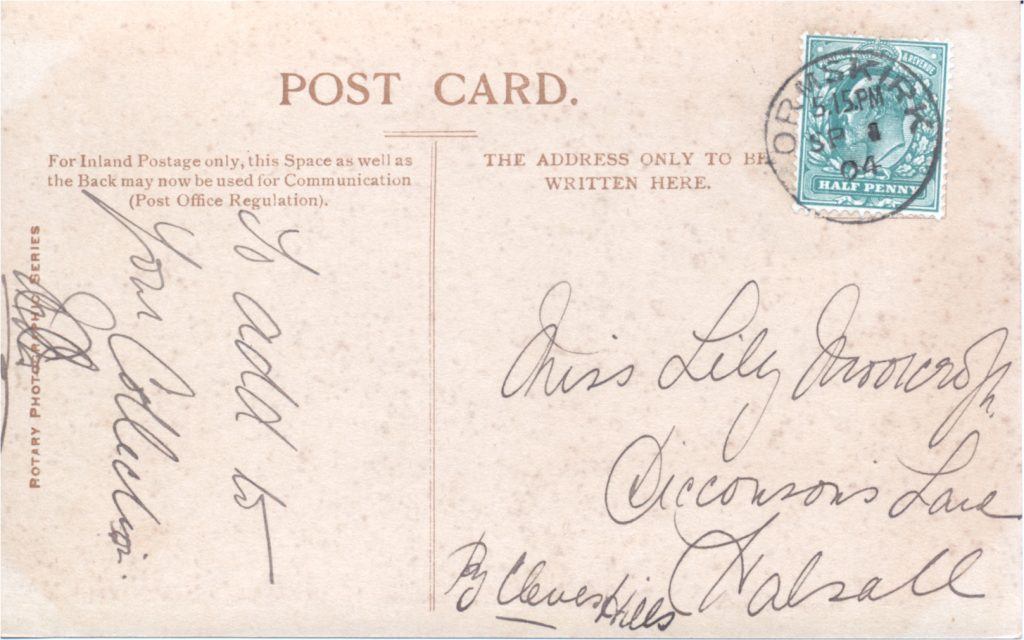 POST CARD.
For Inland Postage only, this Space as well as
the Back may now be used for Communication
(Post Office Regulation).
THE ADDRESS ONLY TO BE
WRITTEN HERE.
& REVENUE
HALF PENNY
ORMSKIRK
5.15.PM
SP 1
04
ROTARY PHOTOGRAPHIC SERIES
To add to
Your Collection.
Miss Lily
Dicconsons Lane
Halsall